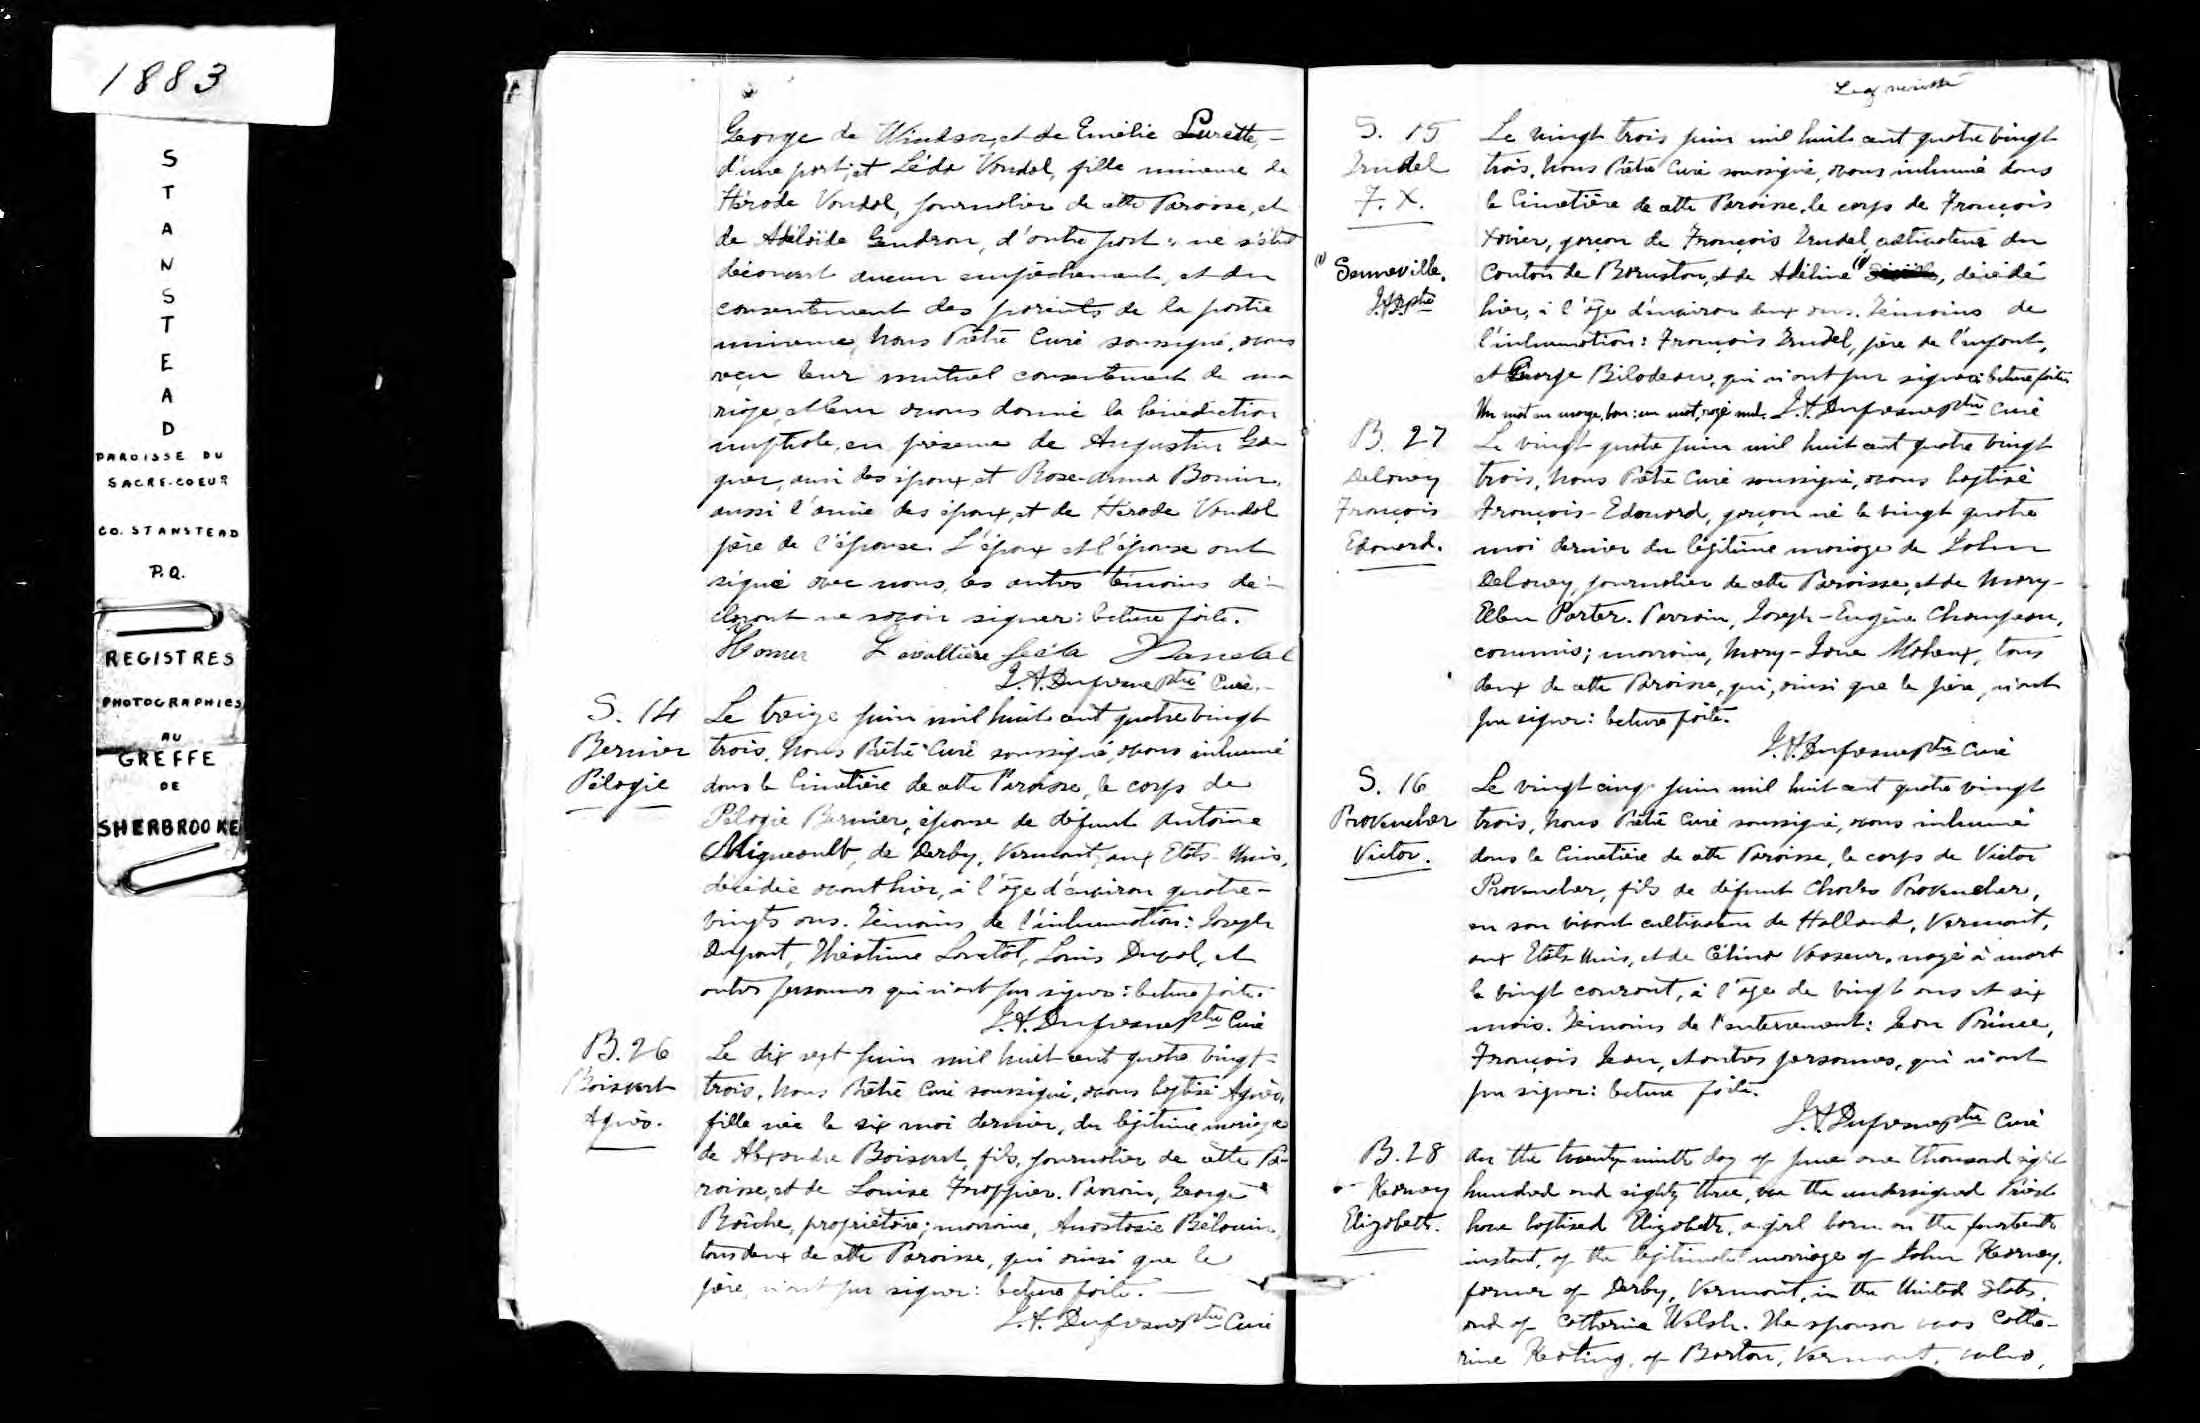 1883
S
T
A
N
S
T
E
A
D
PAROISSE DU
SACRE-COEUR
CO. STANSTEAD
P.Q.
REGISTRES
PHOTOGRAPHIES
AU
GREFFE
DE
SHERBROOKE
George de Windsor, et de Emélie Lurette,
d'une part, et Léda Vandal, fille mineure de
Hérode Vandal, journalier de cette Paroisse, et
de Adélaïde Gendron, d'autre part; ne s'étant
découvert aucun empêchement, et du
consentement des parents de la partie
mineure, Nous Prêtre Curé soussigné, avons
reçu leur mutuel consentement de ma
riage, et leur avons donné la bénédiction
nuptiale, en présence de Augustin Ga-
gner, ami des époux, et Rose-Anna
aussi l'amie des époux, et de Hérode Vandal
père de l'épouse. L'époux et l'épouse ont
signé avec nous, les autres témoins dé-
clarant ne savoir signer: lecture faite.
Homer Lavallière Léda Vandal
J.A. Dufresne Ptre Curé.
S. 14
Bernier
Pélagie
Le treize juin mil huit cent quatre vingt
trois, Nous Prêtre Curé soussigné, avons inhumé
dans le Cimetière de cette Paroisse, le corps de
Pélagie Bernier, épouse de défunt Antoine
Migneault, de Derby, Vermont, aux Etats-Unis,
décédée avant hier, à l'âge d'environ quatre-
vingts ans. Témoins de l'inhumation: Joseph
Dupont, Louis Duval, et
autres personnes qui n'ont pu signer: lecture faite.
J.A. Dufresne Ptre Curé
B. 26
Boisvert
Agnès.
Le dix sept juin mil huit cent quatre vingt-
trois, Nous Prêtre Curé soussigné, avons baptisé Agnès,
fille née le six mai dernier, du légitime mariage
de Alexandre Boisvert, fils, journalier de cette Pa-
roisse, et de Louise Frappier. Parrain, George
Roiche, propriétaire; marraine, Anastasie
tous deux de cette Paroisse, qui ainsi que le
père, n'ont pu signer: lecture faite.
J.A. Dufresne Ptre Curé
S. 15
Trudel
F. X.
(1) Senneville.
J.A.D. Ptre
Le vingt trois juin mil huit cent quatre vingt
trois, Nous Prêtre Curé soussigné, avons inhumé dans
le Cimetière de cette Paroisse, le corps de François
Xavier, garçon de François Trudel, cultivateur du
Canton de Barnston, et de Adéline (1) , décédé
hier, à l'âge d'environ deux ans. Témoins de
l'inhumation: François Trudel, père de l'enfant,
et George Bilodeau, qui n'ont pu signer: lecture faite.
Un mot en marge, bon: un mot, rayé nul. J.A. Dufresne Ptre Curé
B. 27
Delaney
François
Edouard.
Le vingt quatre juin mil huit cent quatre vingt
trois, Nous Prêtre Curé soussigné, avons baptisé
François-Edouard, garçon né le vingt quatre
mai dernier du légitime mariage de John
Delaney, journalier de cette Paroisse, et de Mary-
Ellen Porter. Parrain, Joseph-Eugène Champeau,
commis; marraine, Mary-Jane Maheux, tous
deux de cette Paroisse, qui, ainsi que le père, n'ont
pu signer: lecture faite.
J.A. Dufresne Ptre Curé
S. 16
Provencher
Victor.
Le vingt cinq juin mil huit cent quatre vingt
trois, Nous Prêtre Curé soussigné, avons inhumé
dans le Cimetière de cette Paroisse, le corps de Victor
Provencher, fils de défunt Charles Provencher,
en son vivant cultivateur de Holland, Vermont,
aux Etats-Unis, et de Célina Vasseur, noyé à mort
le vingt courant, à l'âge de vingt ans et six
mois. Témoins de l'enterrement: Jean Prince,
François Jean, et autres personnes, qui n'ont
pu signer: lecture faite.
J.A. Dufresne Ptre Curé
B. 28
Kearney
Elizabeth.
On the twenty ninth day of June one thousand eight
hundred and eighty three, we the undersigned Priest
have baptised Elizabeth, a girl born on the fourteenth
instant, of the legitimate marriage of John Kearney,
farmer of Derby, Vermont, in the United States,
and of Catherine Walsh. The sponsor was Cathe-
rine Keating, of Barton, Vermont, who,